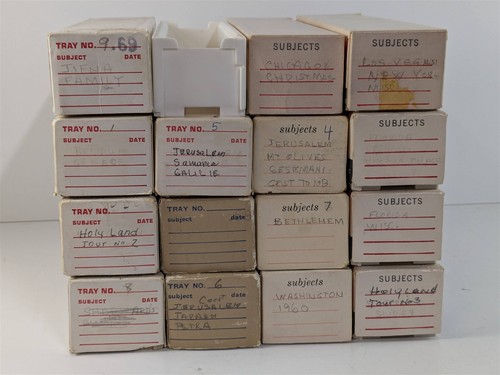 TRAY NO. 9.69
SUBJECT DATE
FAMILY
SUBJECTS
CHICAGO
CHRISTMAS
SUBJECTS
LAS VEGAS
NEW YEAR
TRAY NO. 1
SUBJECT DATE
TRAY NO. 5
SUBJECT DATE
JERUSALEM
Samaria
GALILIE
subjects 4
JERUSALEM
MT OLIVES
GETSEMANI
SUBJECTS
TRAY NO. 2
SUBJECT DATE
Holy Land
Tour No 2
TRAY NO.
subject date
subjects 7
BETHLEHEM
SUBJECTS
TRAY NO. 8
SUBJECT DATE
TRAY NO. 6
subject date
Cont
JERUSALEM
PETRA
subjects
WASHINGTON
1960
SUBJECTS
Holy Land
Tour No 3